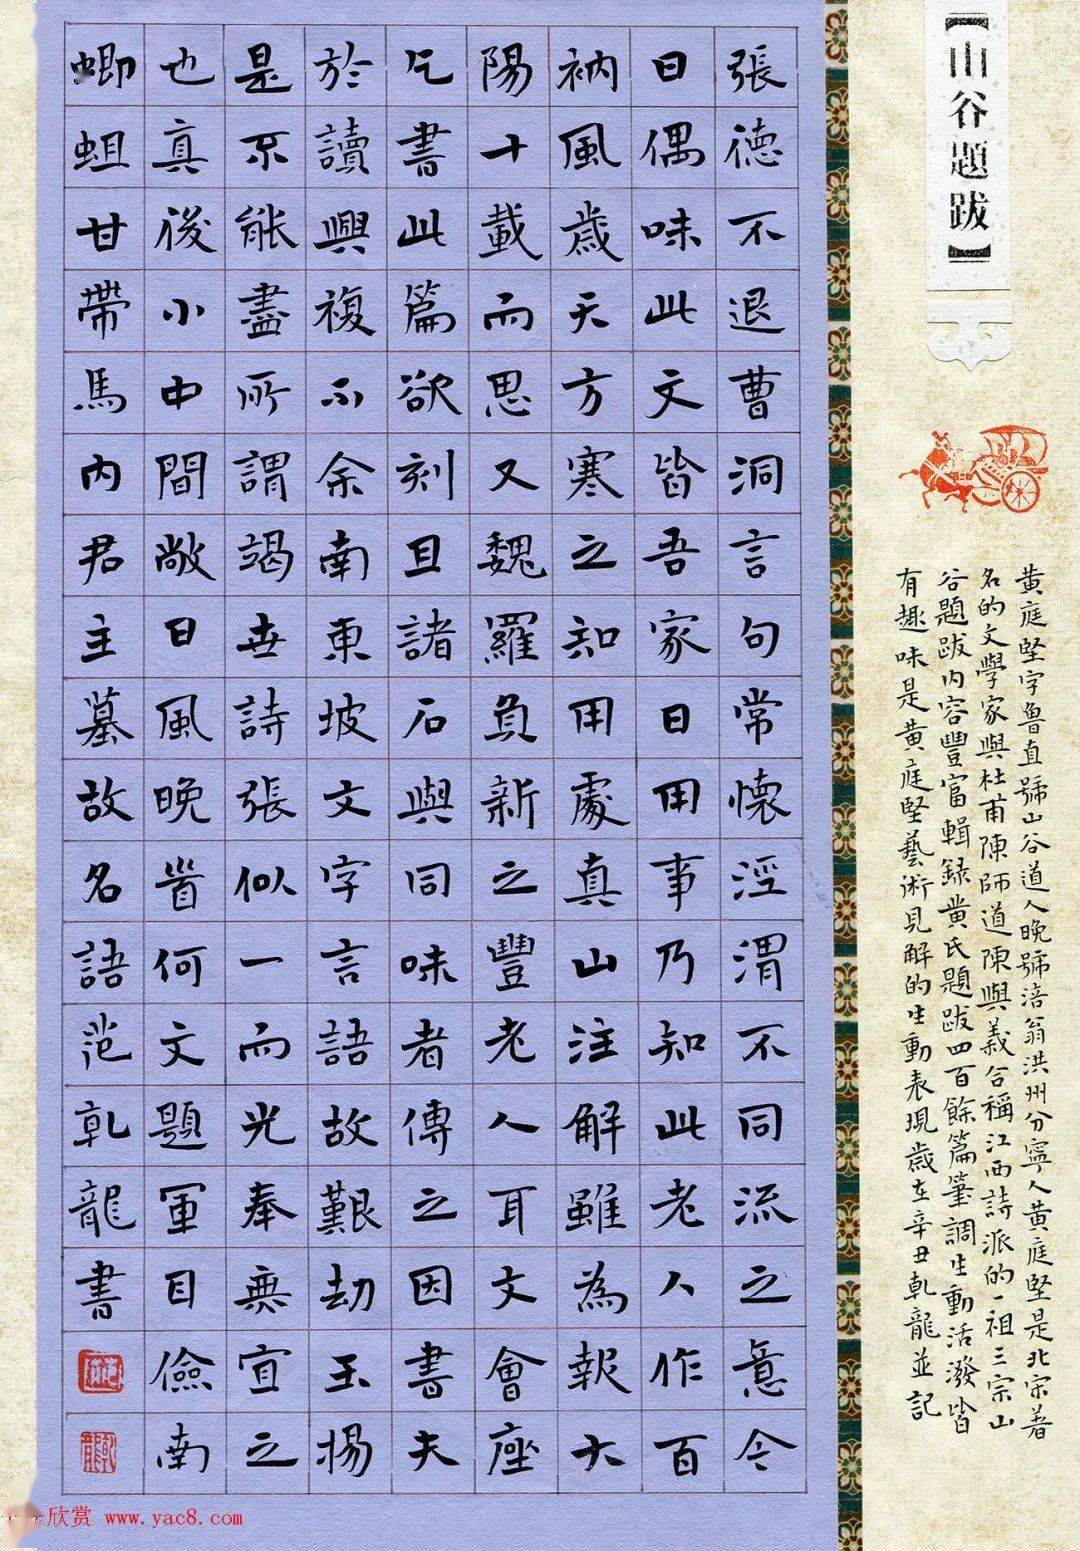 【山谷題跋】
黃庭堅字魯直號山谷道人晚號涪翁洪州分寧人黃庭堅是北宋著
名的文學家與杜甫陳師道陳與義合稱江西詩派的一祖三宗山
谷題跋內容豐富輯錄黃氏題跋四百餘篇筆調生動活潑皆
有趣味是黃庭堅藝術見解的生動表現歲在辛丑乾龍並記
張德不退曹洞言句常懷涇渭不同流之意今
日偶味此文皆吾家日用事乃知此老人作百
衲風歲天方寒之知用處真山注解雖為報大
陽十載而思又魏羅負新之豐老人耳文會座
乞書此篇欲刻且諸石與同味者傳之因書夫
於讀興複不余南東坡文字言語故艱劫玉揚
是不能盡所謂竭世詩張似一而光奉無宜之
也真後小中間敞日風晚首何文題軍目儉南
蝍蛆甘帶馬內君主墓故名語范乾龍書
欣赏 www.yac8.com